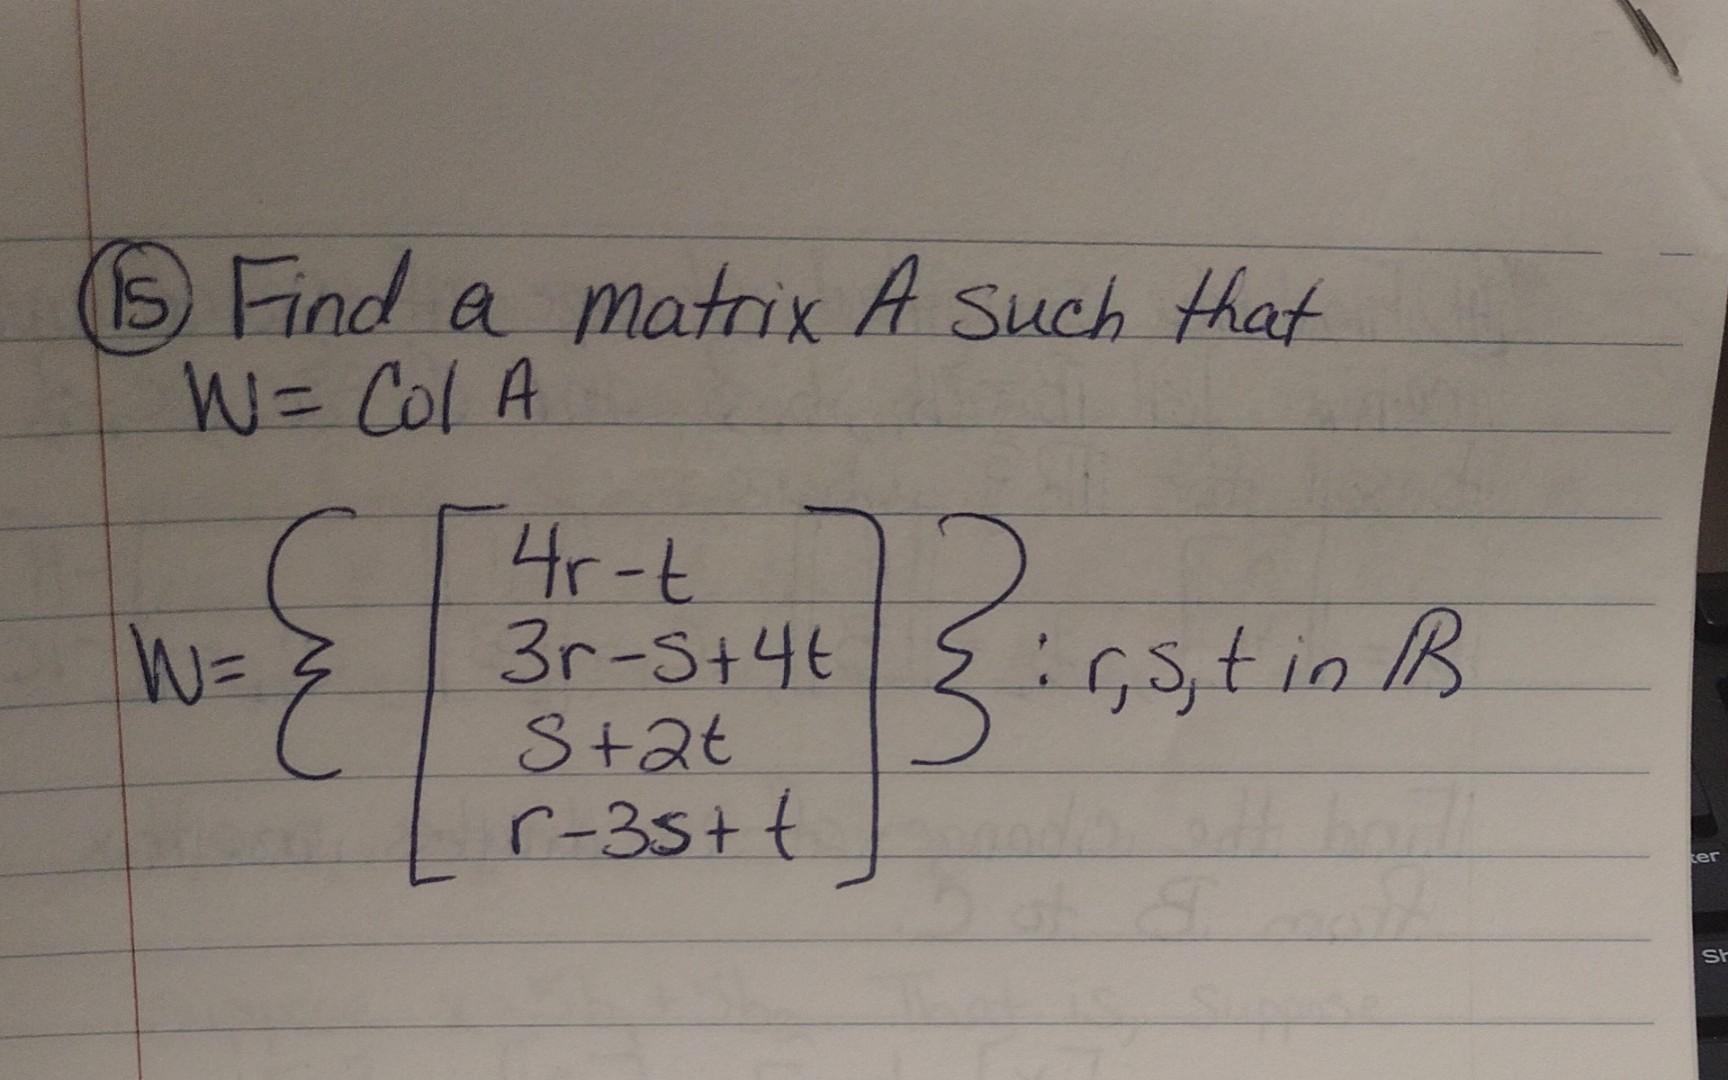 15 Find a matrix A such that
W = Col A
W = { [ 4r - t
3r - s + 4t
s + 2t
r - 3s + t ] } : r, s, t in ℝ
ter
Sh